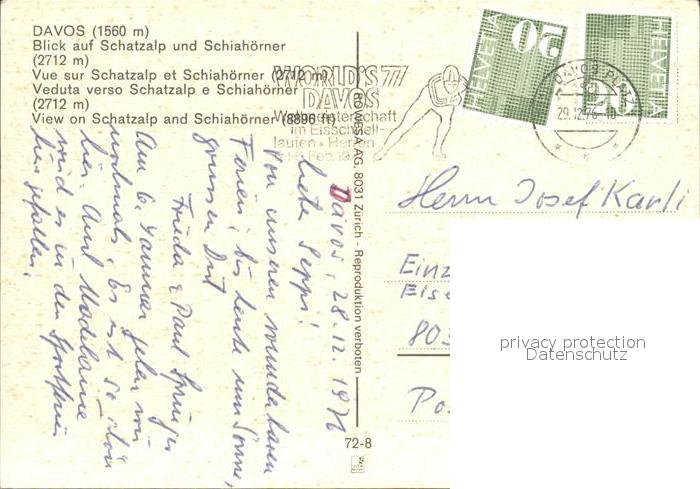 DAVOS (1560 m)
Blick auf Schatzalp und Schiahörner
(2712 m)
Vue sur Schatzalp et Schiahörner (2712 m)
Veduta verso Schatzalp e Schiahörner
(2712 m)
View on Schatzalp and Schiahörner (8896 ft)
WORLD'S 77
DAVOS
Weltmeisterschaft
im Eisschnell-
laufen - Herren
Feb.
HELVETIA
50
HELVETIA
DAVOS PLATZ
29.12.76-10
ROWESA AG, 8031 Zürich - Reproduktion verboten
72-8
Davos, 28.12.1976
Liebe Seppi!
Von unseren wunderbaren
Ferien, bis heute nur Sonne,
grüssen Dich
Frieda & Paul
Am 6. Januar gehen wir
nochmals. Es ist so schön
hier. Auch Madelaine
wird es in den Sportferien
hier gefallen.
Herrn Josef Karli
Einz
Eise
803
Po
privacy protection
Datenschutz